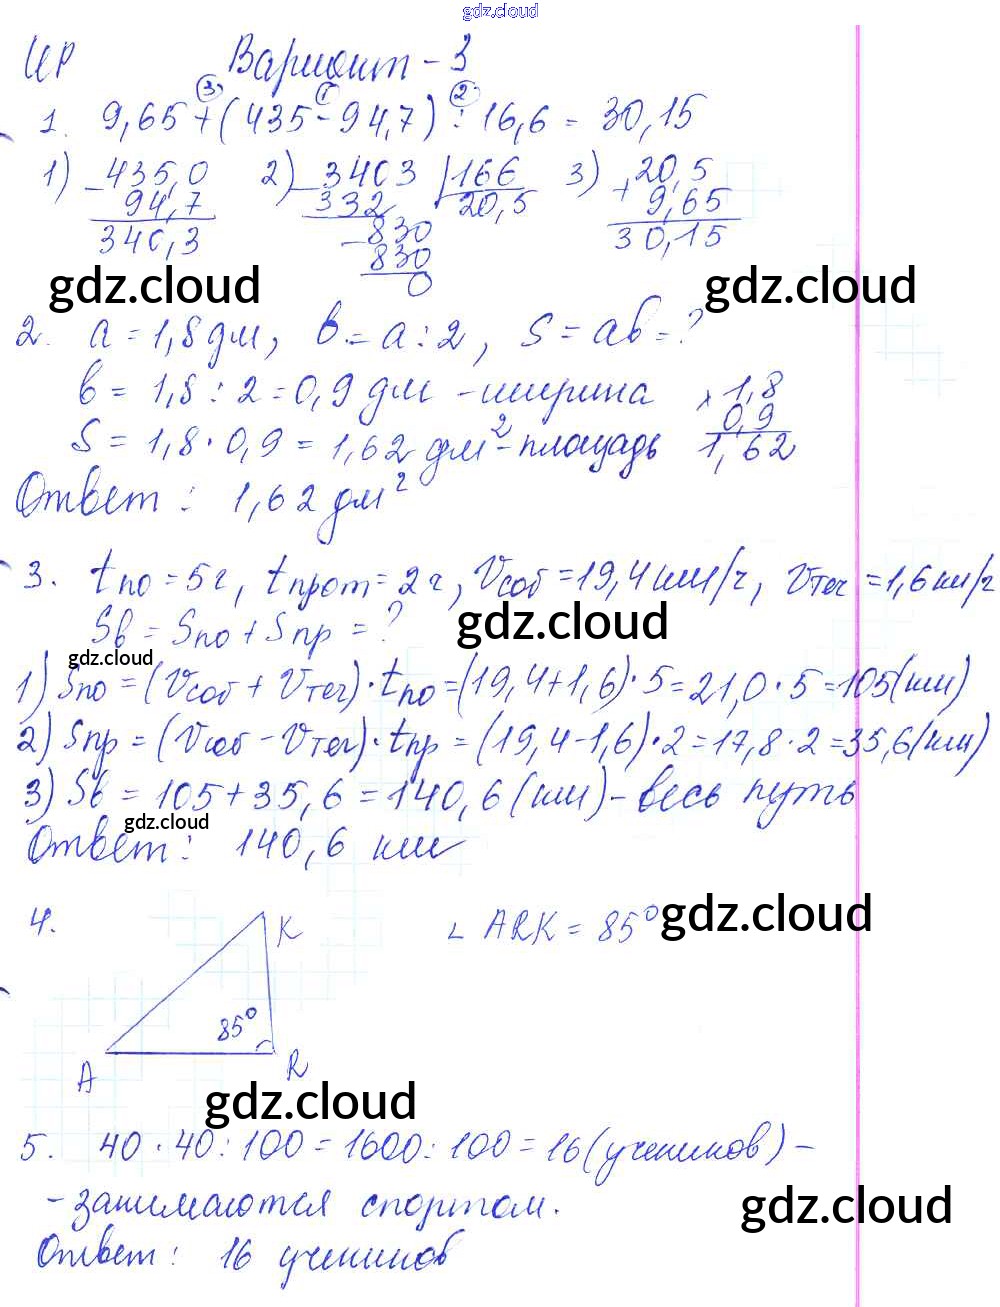 gdz.cloud
ИР Вариант - 3
3 1 2
1. 9,65 + (435 - 94,7) : 16,6 = 30,15
1) 435,0 2) 3403 166 3) 20,5
- 94,7 - 332 20,5 + 9,65
340,3 - 830 30,15
830
0
gdz.cloud gdz.cloud
2. a = 1,8 дм, b = a : 2, S = ab = ?
b = 1,8 : 2 = 0,9 дм - ширина × 1,8
0,9
S = 1,8 · 0,9 = 1,62 дм² - площадь 1,62
Ответ : 1,62 дм²
3. t по = 5 ч, t прот = 2 ч, V соб = 19,4 км/ч, V теч = 1,6 км/ч
Sв = S по + S пр = ?
gdz.cloud
gdz.cloud
1) S по = (V соб + V теч) · t по = (19,4 + 1,6) · 5 = 21,0 · 5 = 105 (км)
2) S пр = (V соб - V теч) · t пр = (19,4 - 1,6) · 2 = 17,8 · 2 = 35,6 (км)
3) Sв = 105 + 35,6 = 140,6 (км) - весь путь
gdz.cloud
Ответ : 140,6 км
4. K ∟ ARK = 85°
gdz.cloud
85°
A R
gdz.cloud
5. 40 · 40 : 100 = 1600 : 100 = 16 (учеников) -
- занимаются спортом.
gdz.cloud
Ответ : 16 учеников